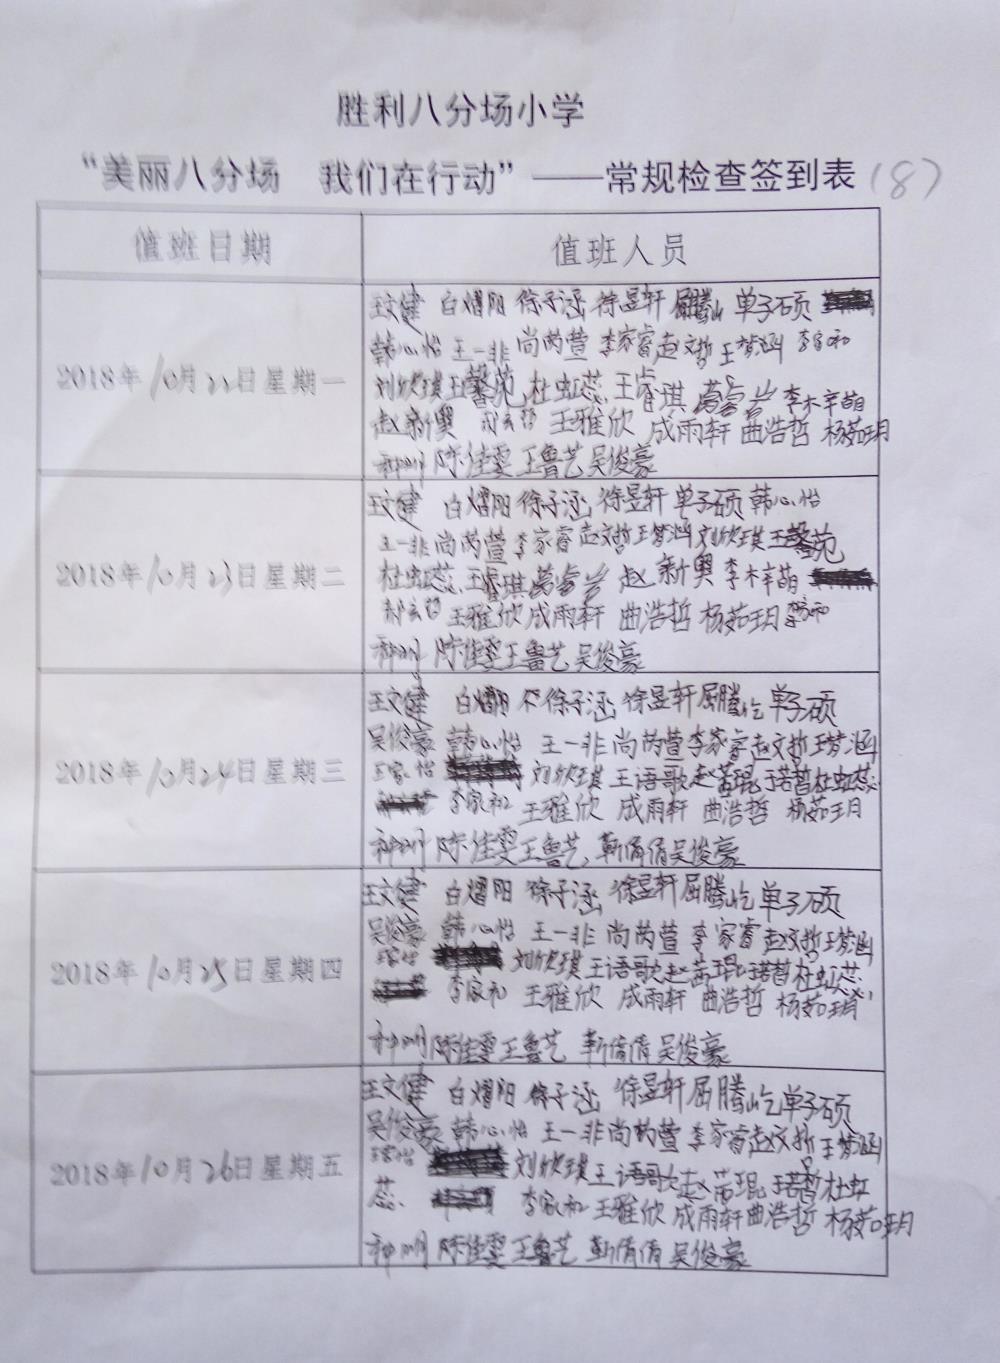 胜利八分场小学
“美丽八分场 我们在行动”——常规检查签到表(8)
值班日期 值班人员
2018年10月22日星期一
王文健 白熠阳 徐子涵 徐昱轩 屈腾屹 单子硕
韩心怡 王一非 尚芮萱 李家睿 赵文哲 王梦涵 李家和
刘欣琪 王馨苑 杜虹蕊 王睿琪 葛睿岩 李木辛萌
赵新奥 王雅欣 成雨轩 曲浩哲 杨茹玥
种明 陈佳雯 王鲁艺 吴俊豪
2018年10月23日星期二
王文健 白熠阳 徐子涵 徐昱轩 单子硕 韩心怡
王一非 尚芮萱 李家睿 赵文哲 王梦涵 刘欣琪 王馨苑
杜虹蕊 王睿琪 葛睿岩 赵新奥 李木辛萌
王雅欣 成雨轩 曲浩哲 杨茹玥 李家和
种明 陈佳雯 王鲁艺 吴俊豪
2018年10月24日星期三
王文健 白熠阳 徐子涵 徐昱轩 屈腾屹 单子硕
吴俊豪 韩心怡 王一非 尚芮萱 李家睿 赵文哲 王梦涵
王家怡 刘欣琪 王语歌 赵芮琨 于若皙 杜虹蕊
李家和 王雅欣 成雨轩 曲浩哲 杨茹玥
种明 陈佳雯 王鲁艺 靳倩倩 吴俊豪
2018年10月25日星期四
王文健 白熠阳 徐子涵 徐昱轩 屈腾屹 单子硕
吴俊豪 韩心怡 王一非 尚芮萱 李家睿 赵文哲 王梦涵
刘欣琪 王语歌 赵芮琨 于若皙 杜虹蕊
李家和 王雅欣 成雨轩 曲浩哲 杨茹玥
种明 陈佳雯 王鲁艺 靳倩倩 吴俊豪
2018年10月26日星期五
王文健 白熠阳 徐子涵 徐昱轩 屈腾屹 单子硕
吴俊豪 韩心怡 王一非 尚芮萱 李家睿 赵文哲 王梦涵
刘欣琪 王语歌 赵芮琨 于若皙 杜虹
蕊 李家和 王雅欣 成雨轩 曲浩哲 杨茹玥
种明 陈佳雯 王鲁艺 靳倩倩 吴俊豪